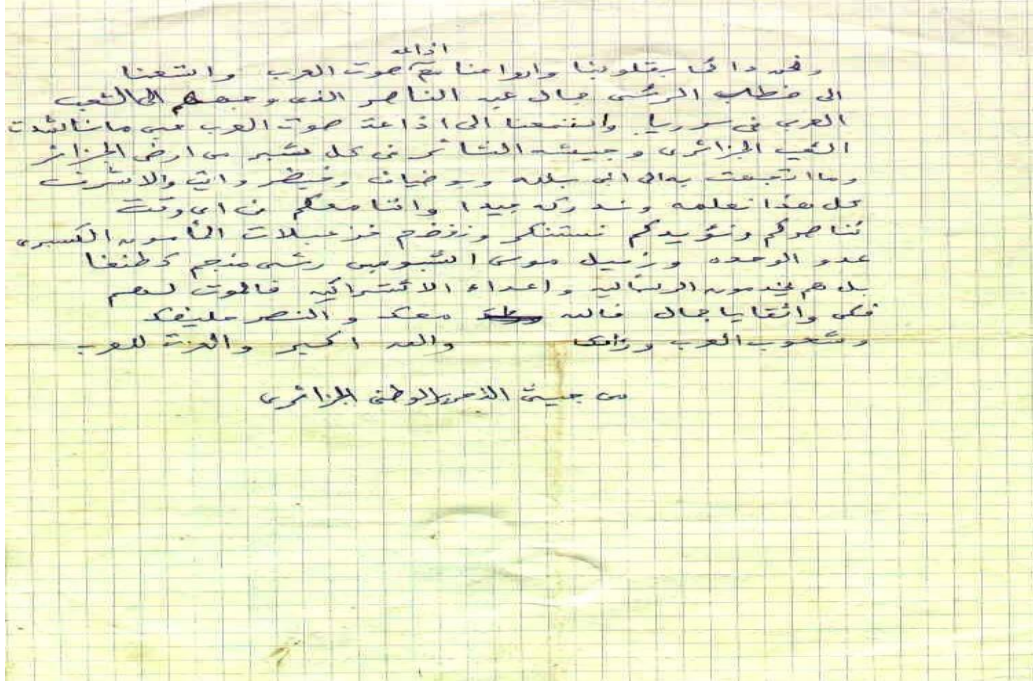 اذاعة
ونحن دائما بقلوبنا وارواحنا مع صوت العرب واستمعنا
الى خطب الرئيس جمال عبد الناصر الذى وجههم الى الشعب
العربى فى سوريا واستمعنا الى اذاعة صوت العرب حين ناشدت
الشعب الجزائرى وجيشه الثائر فى كل شبر من ارض الجزائر
وما بعثت به الى ابن بلله وبوضياف وخيضر وايت والاشرف
كل هذا نعلمه وندركه جيدا واننا معكم فى اى وقت
نناصركم ونؤيدكم نستنكر ونرفض خزعبلات المأمون الكسبرى
عدو الوحده وزميل موسى الشيوعيين
بل هم يخدمون الرسماليه واعداء الاشتراكيه فالموت لهم
فكن واثقا يا جمال فالله معك والنصر حليفك
وشعوب العرب ورائك والله اكبر والعزة للعرب
من جيش التحرير الوطنى الجزائرى